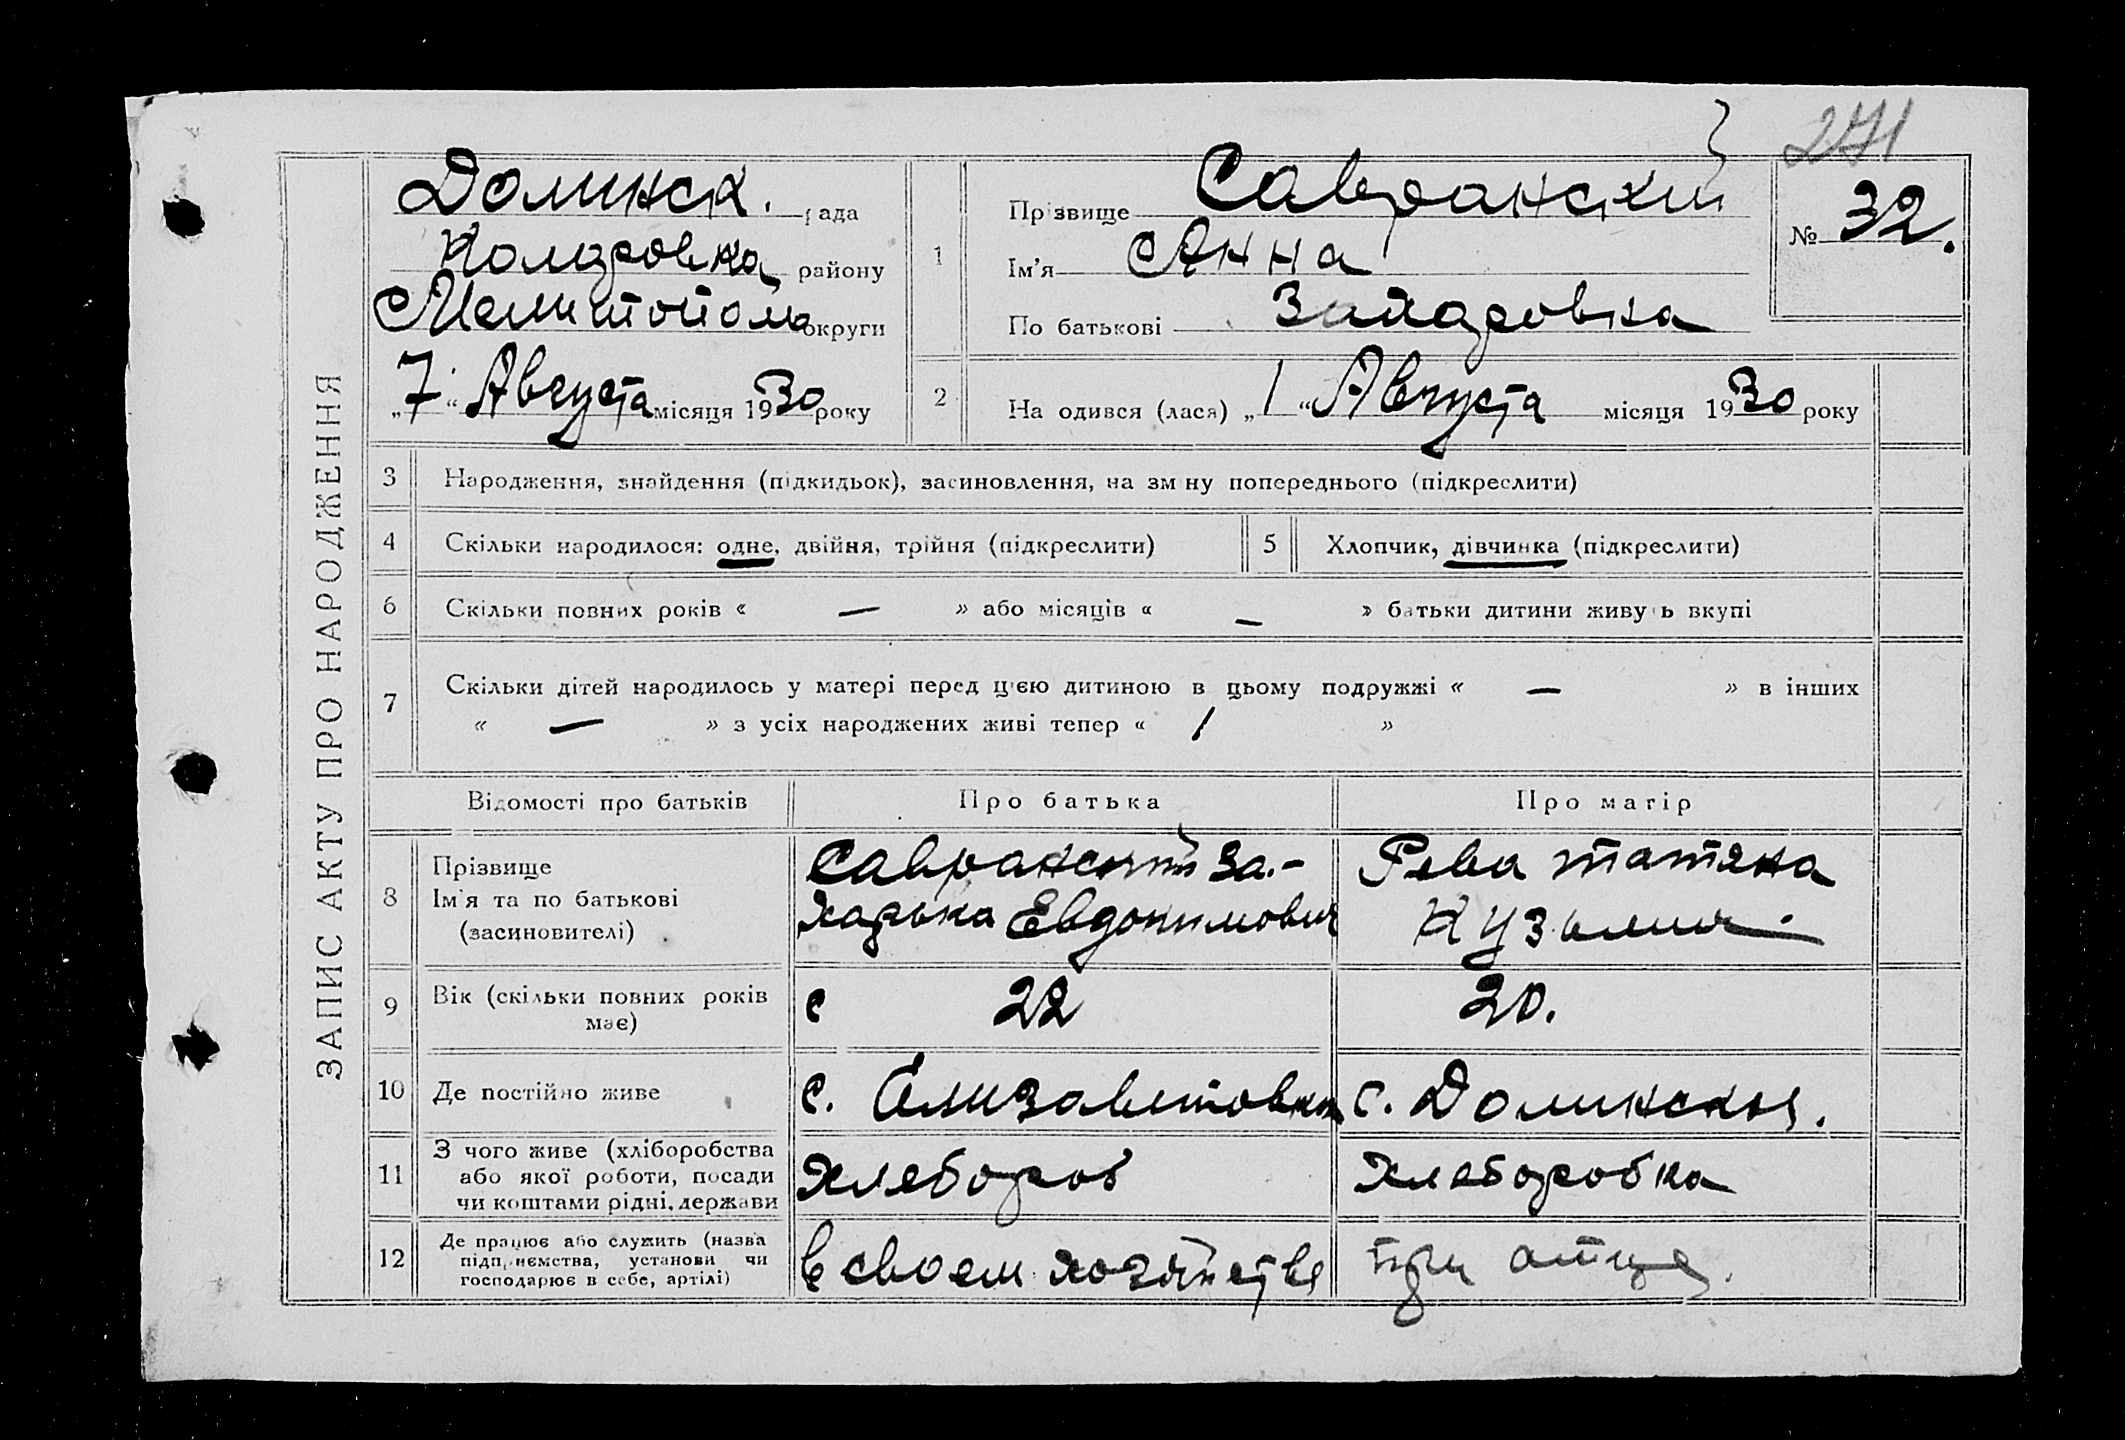 271
Долинск. рада
району
Мелитополь округи
„7“ Августа місяця 1930 року
1
Прізвище Савранский
Ім'я Анна
По батькові Захаровна
№ 32.
2
На одився (лася) „1“ Августа місяця 1930 року
ЗАПИС АКТУ ПРО НАРОДЖЕННЯ
3 Народження, знайдення (підкидьок), засиновлення, на зм ну попереднього (підкреслити)
4 Скільки народилося: одне, двійня, трійня (підкреслити)
5 Хлопчик, дівчинка (підкреслити)
6 Скільки повних років « — » або місяців « — » батьки дитини живуть вкупі
7 Скільки дітей народилось у матері перед цією дитиною в цьому подружжі « — » в інших
« — » з усіх народжених живі тепер « 1 »
Відомості про батьків
Про батька
Про матір
8
Прізвище
Ім'я та по батькові
(засиновителі)
Савранский За-
харька Евдокимович
Рева Татяна
Кузьмин.
9
Вік (скільки повних років
має)
с 22
20.
10 Де постійно живе
с. Елизаветовка
с. Долинская.
11
З чого живе (хліборобства
або якої роботи, посади
чи коштами рідні, держави
Хлебороб
Хлеборобка
12
Де працює або служить (назва
підприємства, установи чи
господарює в себе, артілі)
в своем хозяйстве
при отце.